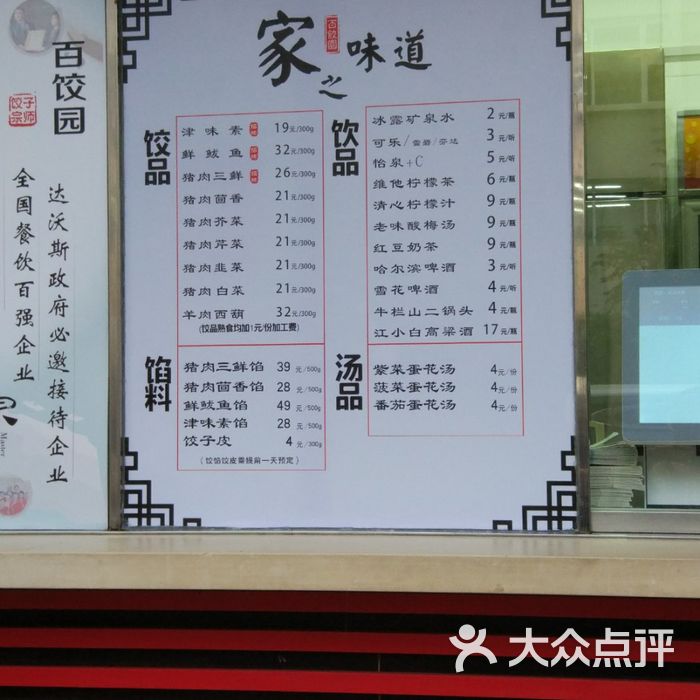 百饺园
饺子宗师
全国餐饮百强企业
达沃斯政府必邀接待企业
Master
百饺园
家之味道
饺品
津味素 19元/300g
鲜鲅鱼 32元/300g
猪肉三鲜 26元/300g
猪肉茴香 21元/300g
猪肉芥菜 21元/300g
猪肉芹菜 21元/300g
猪肉韭菜 21元/300g
猪肉白菜 21元/300g
羊肉西葫 32元/300g
(饺品熟食均加1元/份加工费)
馅料
猪肉三鲜馅 39元/500g
猪肉茴香馅 28元/500g
鲜鲅鱼馅 49元/500g
津味素馅 28元/500g
饺子皮 4元/300g
(饺馅饺皮需提前一天预定)
饮品
冰露矿泉水 2元/瓶
可乐/雪碧/芬达 3元/听
怡泉+C 5元/听
维他柠檬茶 6元/瓶
清心柠檬汁 9元/瓶
老味酸梅汤 9元/瓶
红豆奶茶 9元/瓶
哈尔滨啤酒 3元/听
雪花啤酒 4元/听
牛栏山二锅头 4元/瓶
江小白高粱酒 17元/瓶
汤品
紫菜蛋花汤 4元/份
菠菜蛋花汤 4元/份
番茄蛋花汤 4元/份
大众点评